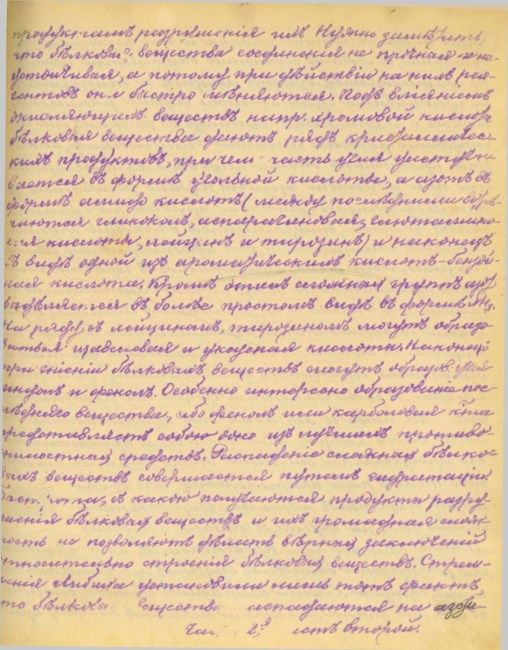 продуктамъ разрушенія ихъ. Нужно замѣтить,
что бѣлковыя вещества соединенія не прочныя и не-
устойчивыя, а потому при дѣйствіи на нихъ реа-
гентовъ они быстро мѣняются. Подъ вліяніемъ
окисляющихъ веществъ напр. хромовой кислоты
бѣлковыя вещества даютъ рядъ кристалличес-
кихъ продуктовъ, при чемъ часть угля
вается въ формѣ угольной кислоты, а азотъ въ
формѣ амидо кислотъ (между послѣдними встрѣ-
чаются гликоколъ, аспарагиновая, глютамино-
вая кислоты, лейцинъ и тирозинъ) и наконецъ
въ видѣ одной изъ ароматическихъ кислотъ - бензой-
ная кислота. Кромѣ этихъ сложныхъ группъ азотъ
выдѣляется въ болѣе простомъ видѣ въ формѣ
На ряду съ лейциномъ, тирозиномъ могутъ образо-
ваться щавелевая и уксусная кислоты. Наконецъ
при гніеніи бѣлковыхъ веществъ могутъ образов.
индолъ и фенолъ. Особенно интересно образованіе пос-
лѣдняго вещества, ибо фенолъ или карболовая к-та
представляетъ собою одно изъ лучшихъ противо-
гнилостныхъ средствъ. Распаденіе сложныхъ бѣлко-
выхъ веществъ совершается путемъ гидратаціи.
Быстрота, съ какою получаются продукты разру-
шенія бѣлковыхъ веществъ и ихъ громадная слож-
ность не позволяютъ сдѣлать вѣрныхъ заключеній
относительно строенія бѣлковыхъ веществъ. Стрем-
ленія Либиха установили лишь тотъ фактъ,
что бѣлковыя вещества распадаются на